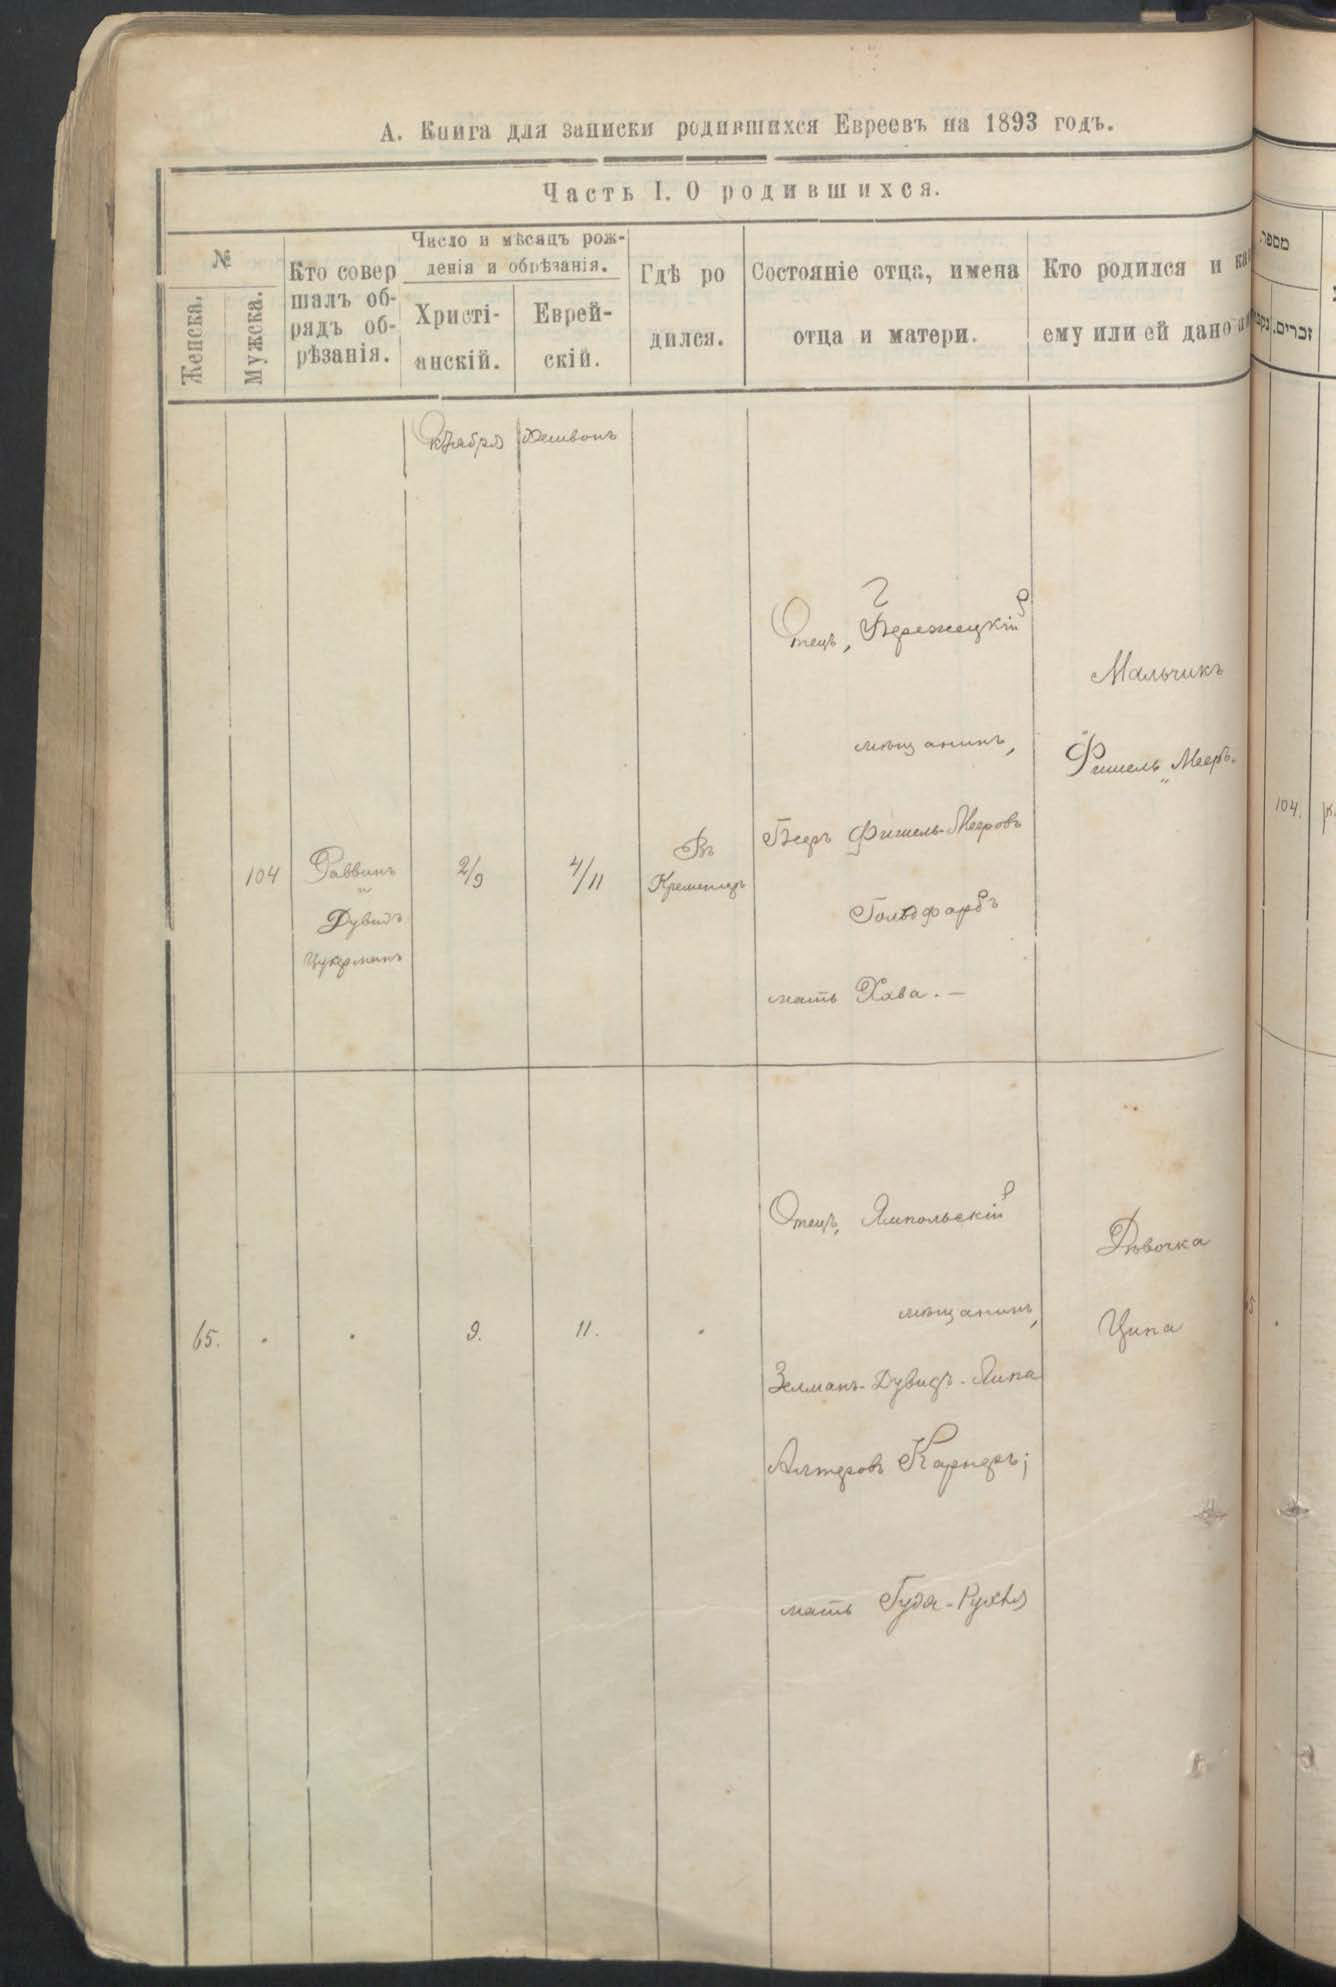 А. Книга для записки родившихся Евреевъ на 1893 годъ.
Часть I. О родившихся.
№
Женска.
Мужска.
Кто совер
шалъ об-
рядъ об-
рѣзанія.
Число и мѣсяцъ рож-
денія и обрѣзанія.
Христі-
анскій.
Еврей-
скій.
Гдѣ ро
дился.
Состояніе отца, имена
отца и матери.
Кто родился и ка
ему или ей дано
מספר
זכרים.
Октября
Хешвонъ
104
Раввинъ
и
Дувидъ
Цукерманъ
2/9
4/11
Въ
Кременцѣ
Отецъ, Бережецкій
мѣщанинъ,
Беръ Фишель-Мееровъ
Гольдфарбъ
мать Хава. —
Мальчикъ
Фишель „Мееръ"
104.
65.
.
.
9.
11.
.
Отецъ, Ямпольскій
мѣщанинъ,
Зелманъ-Дувидъ-Липа
Алтеровъ Карнеръ;
мать Гудя-Рухля
Дѣвочка
Ципа